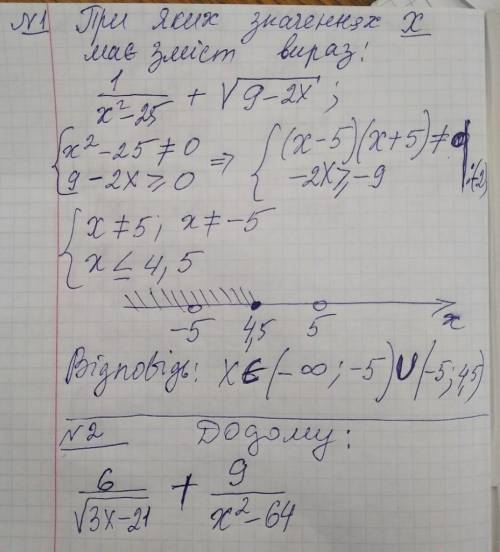 №1 При яких значеннях x
має зміст вираз:
1/(x²-25) + √(9-2x);
{x²-25≠0 ⇒ {(x-5)(x+5)≠0
{9-2x⩾0 {-2x⩾-9 | :(-2)
{x≠5; x≠-5
{x≤4,5
-5 4,5 5 x
Відповідь: x∈(-∞;-5)∪(-5;4,5)
№2 Додому:
6/√(3x-21) + 9/(x²-64)